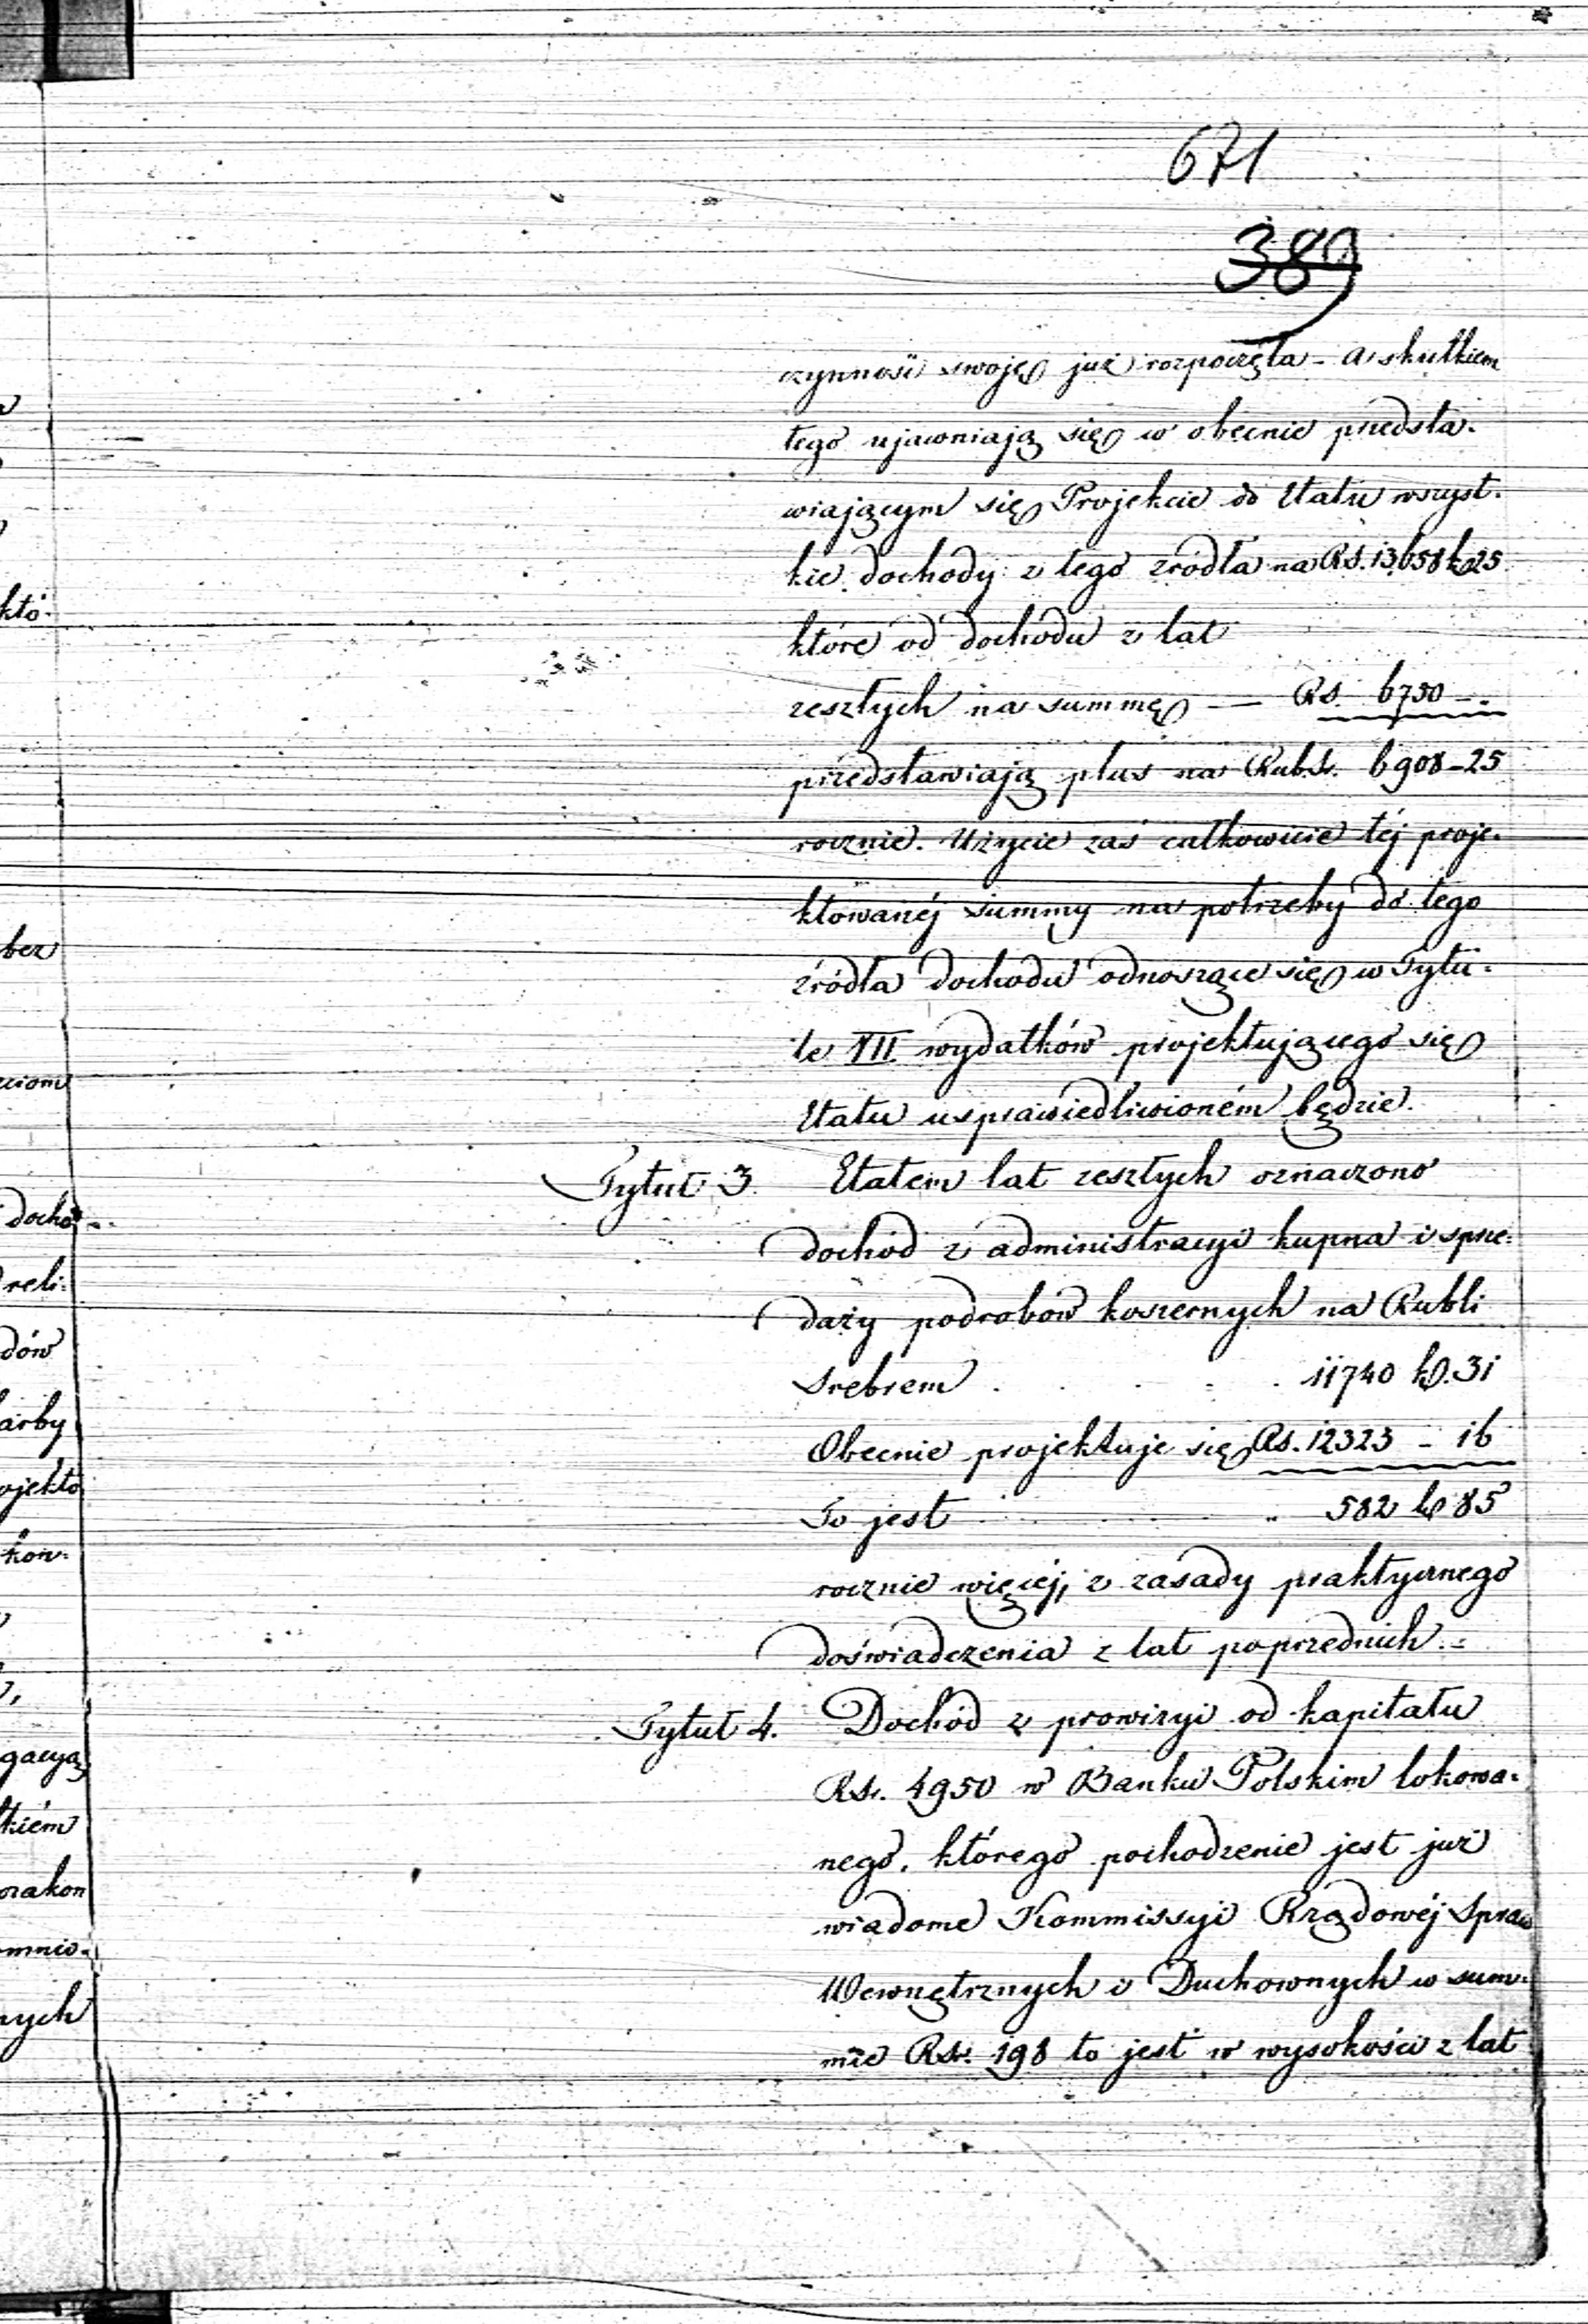 671
389
czynność swoję już rozpoczęła - a skutkiem
tego ujawniają się w obecnie przedsta-
wiającym się Projekcie do Etatu wszyst-
kie dochody z tego źródła na Rs. 13,658 k 25
które od dochodu z lat
zeszłych na summę — Rs. 6750 -
przedstawiają plus na Rub.Sr. 6908-25
rocznie. Użycie zaś całkowicie téj proje-
ktowanéj summy na potrzeby do tego
źródła dochodu odnoszące się w Tytu-
le VII wydatków projektującego się
Etatu usprawiedliwioném będzie.
Tytuł 3. Etatem lat zeszłych oznaczono
dochód z administracyi kupna i sprze-
daży podrobów koszernych na Rubli
srebrem . . . . 11740 k. 31
Obecnie projektuje się Rs. 12323 - 16
To jest . . . „ 582 k 85
rocznie więcéj, z zasady praktycznego
doświadczenia z lat poprzednich.-
Tytuł 4. Dochód z prowizyi od kapitału
Rsr. 4950 w Banku Polskim lokowa-
nego, którego pochodzenie jest już
wiadome Kommissyi Rządowéj Spraw
Wewnętrznych i Duchownych w sum-
mie Rsr. 198 to jest w wysokości z lat
któ-
bez
ciom
docho-
reli-
dów
arby
ojekto
kon-
gacyą
kiém
orakon
mnie-
nych